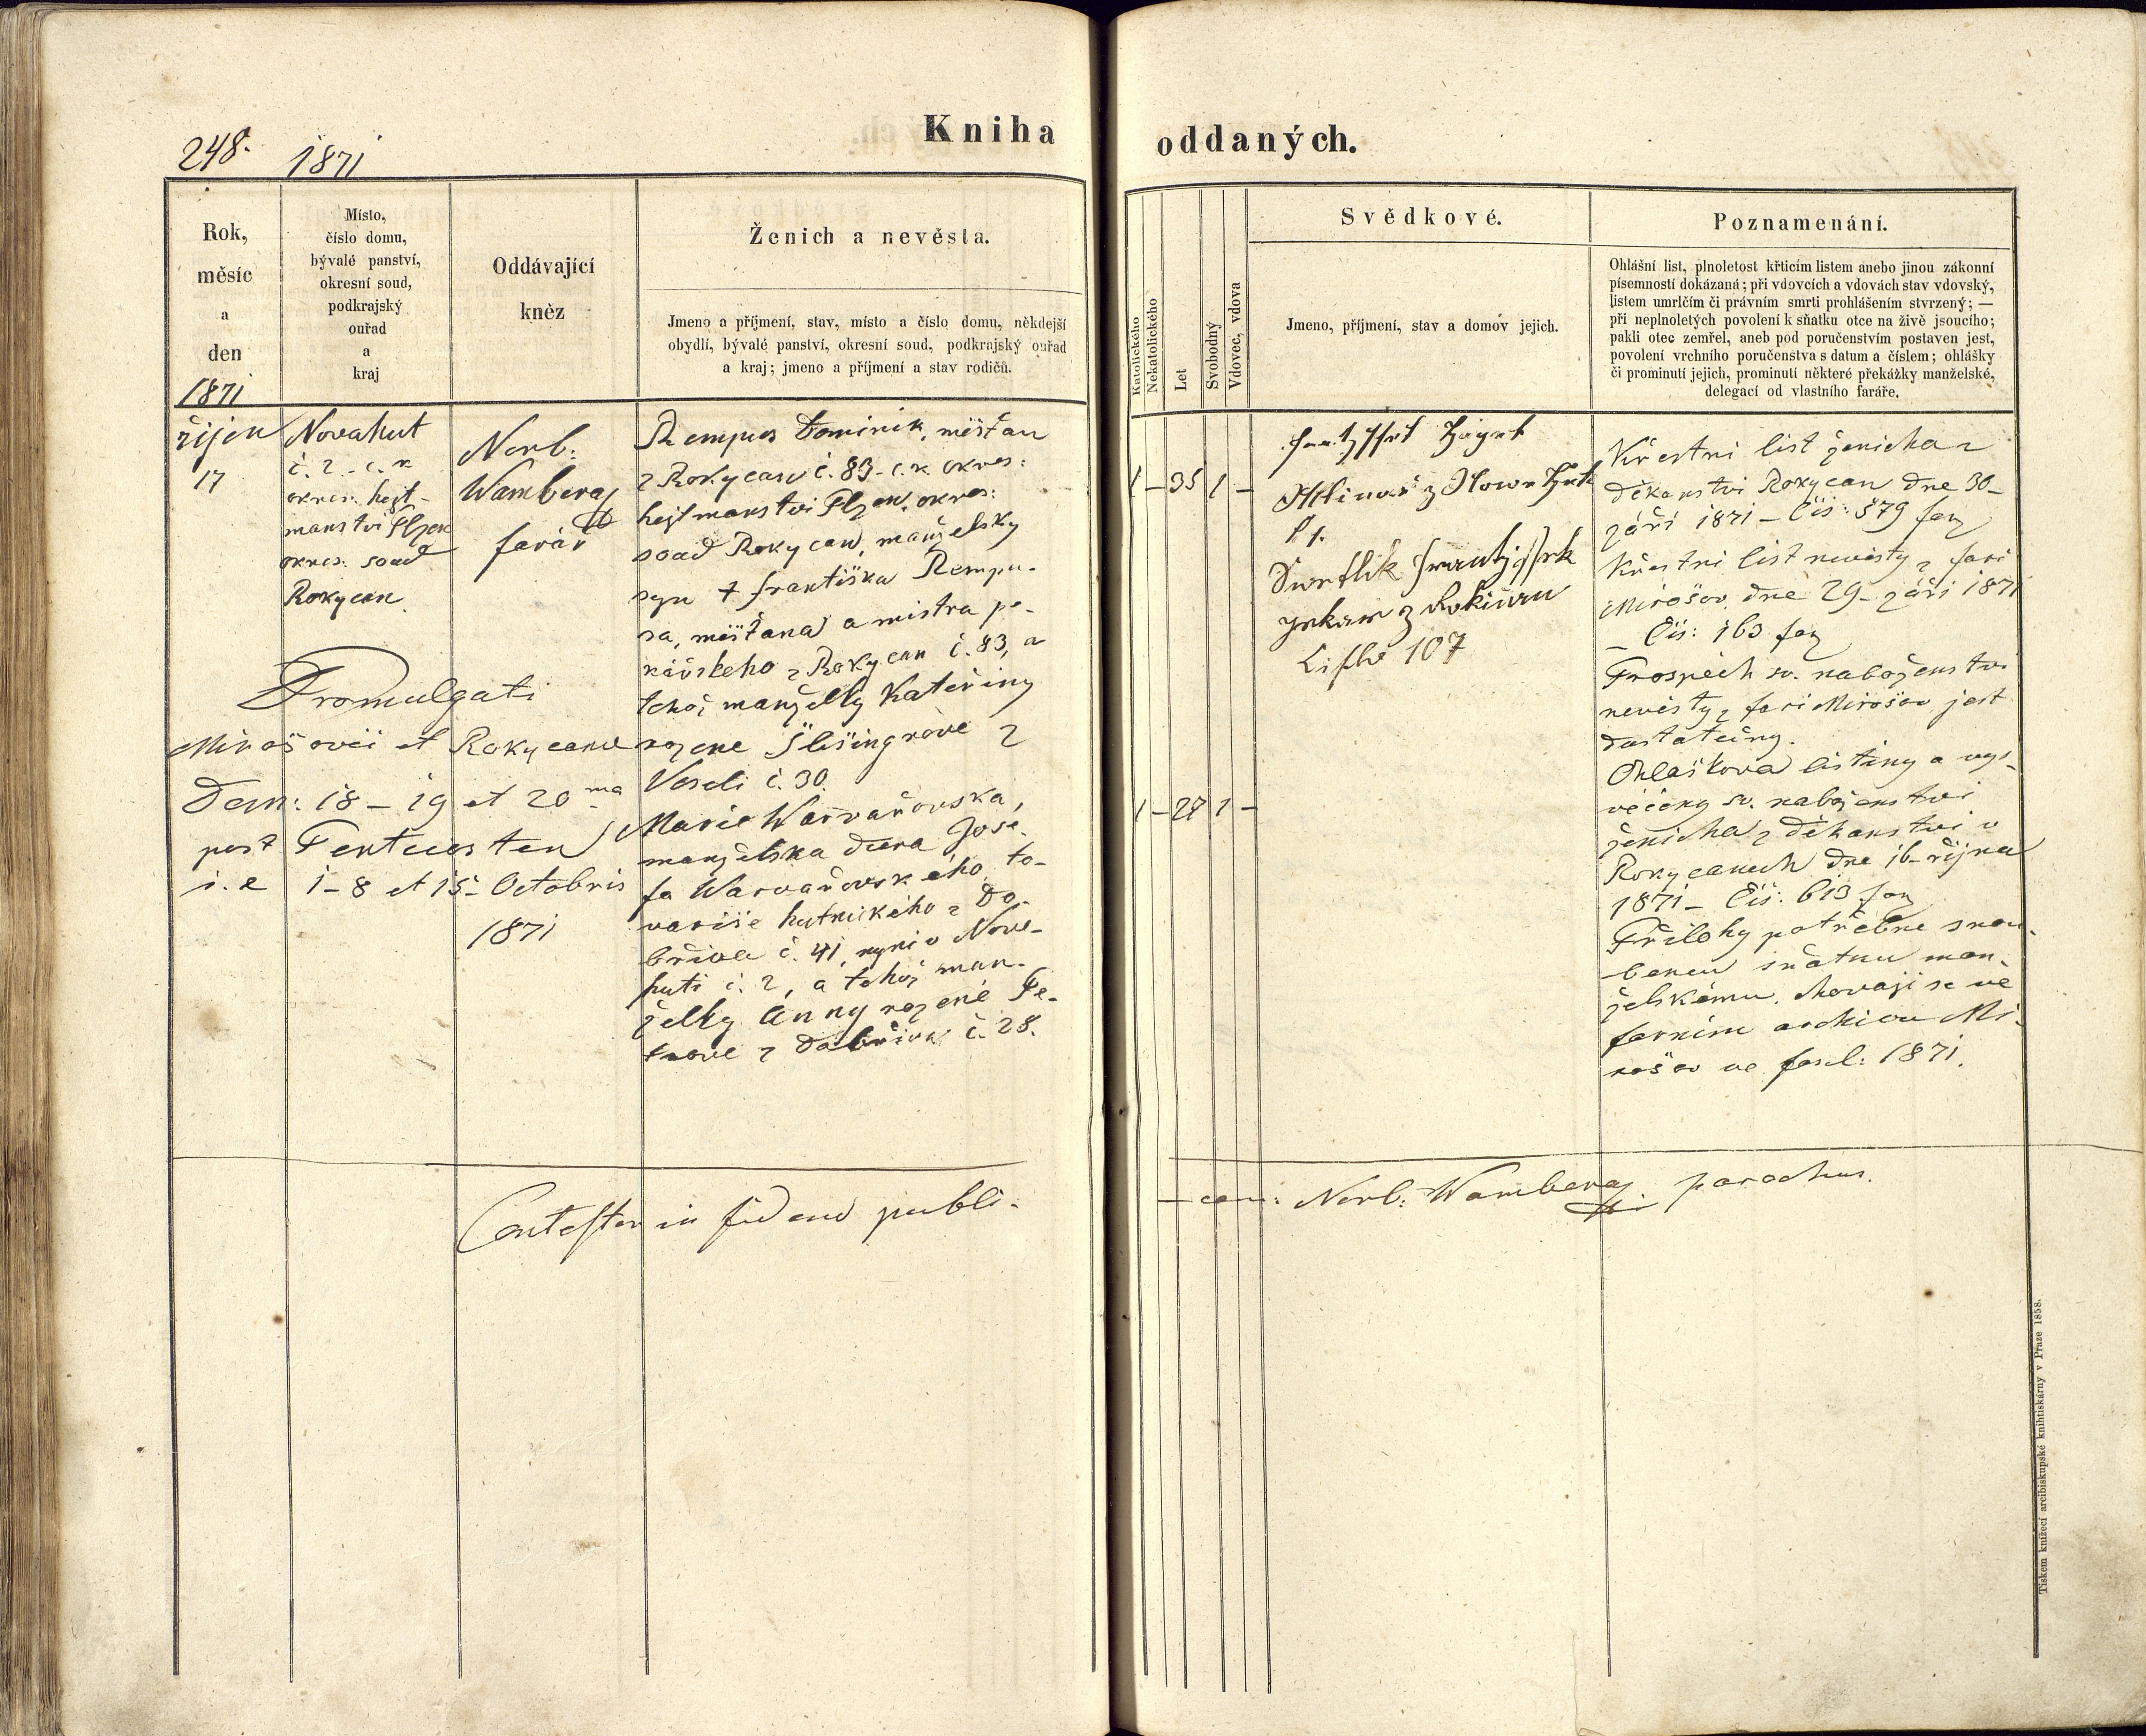 248. 1871
Kniha oddaných.
Rok,
měsíc
a
den
1871
Místo,
číslo domu,
bývalé panství,
okresní soud,
podkrajský
ouřad
a
kraj
Oddávající
kněz
Ženich a nevěsta.
Jmeno a příjmení, stav, místo a číslo domu, někdejší
obydlí, bývalé panství, okresní soud, podkrajský ouřad
a kraj; jmeno a příjmení a stav rodičů.
Katolického
Nekatolického
Let
Svobodný
Vdovec, vdova
Svědkové.
Jmeno, příjmení, stav a domov jejich.
Poznamenání.
Ohlášní list, plnoletost křticím listem anebo jinou zákonní
písemností dokázaná; při vdovcích a vdovách stav vdovský,
listem umrlčím či právním smrti prohlášením stvrzený; —
při neplnoletých povolení k sňatku otce na živě jsoucího;
pakli otec zemřel, aneb pod poručenstvím postaven jest,
povolení vrchního poručenstva s datum a číslem; ohlášky
či prominutí jejich, prominutí některé překážky manželské,
delegací od vlastního faráře.
říjen
17
Novahut
č. 2. c. k
okres. hejt-
manství Plzen
okres. soud
Rokycan
Norb:
Wamberay
farář
Rempus Dominik, měšťan
z Rokycan č. 83 - c. k okres:
hejtmanství Plzen, okres:
soud Rokycan, manželsky
syn † Františka Rempu-
sa, měšťana a mistra pe-
kářskeho z Rokycan č. 83, a
tehož manželky Kateřiny
rozene Šlisingrove z
Veseli č. 30.
Marie Warvařovska,
manželska dcera Jose-
fa Warvařovskeho, to-
variše hutnickeho z Do-
břiva č. 41, nyni v Nove-
huti č. 2, a tehož man-
želky Anny rozené Pe-
trove z Dobřiva č. 28.
Promulgati
Mirošovii et Rokycane
Dom: 18 - 19 et 20 ma
post Pentecosten
i. e 1 - 8 et 15 - Octobris
1871
1 - 35 1 -
1 - 27 1 -
Mlinař z Nowe Huti
z Rokican
Čislo 107
Křestni list ženicha z
děkanstvi Rokycan dne 30 -
září 1871 - Čis: 579 fary
Křestni list nevěsty z fari
Mirošov dne 29 - záři 1871
- Čis: 163 fary
Prospěch sv. naboženstvi
nevěsty z fari Mirošov jest
dostatečny.
Ohlaškova listiny a vys-
věčeny sv. naboženstvi
ženicha z děkanstvi v
Rokycanech dne 16 - řijna
1871 - Čis: 613 fary
Přilohy potřebne snou-
bencu sňatku man-
želskému, chovaji se ve
farnim archivu Mi-
rošov ve fascl: 1871.
Contestor in fidem publi-
- cam: Norb: Wamberay parochus.
Tiskem knížecí arcibiskupské knihtiskárny v Praze 1858.